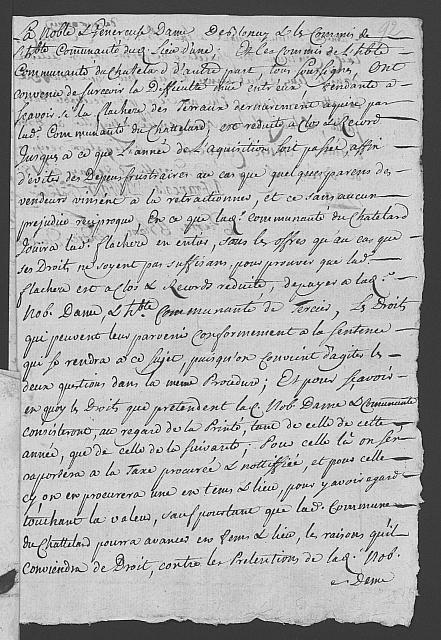 La Noble & Genereuse Dame Desclonay & les Commis de
L'hble Communauté duq. Lieu d'une; Et les Commis de L'hble
Communauté du Chatelard d'autre part, tous soussignés, Ont
convenu de surceoir la Difficulté mue entr'eux tendante à
sçavoir si la flachere des Terraux dernierement aquise par
lad. Communauté du Chattelard, est reduite à Clos & Record
Jusques à ce que L'année de L'aquisition soit passée, affin
d'éviter des Depens frustraires au cas que quelques parens des
vendeurs vinssent à la retractionner, et ce sans aucun
prejudice reciproque. En ce que la q. communauté du Chatelard
Jouira lad. flachere en enclos, sous les offres qu'au cas que
ses Droits ne soyent pas suffisans, pour prouver que lad.
flachere est à Clos & Records reduite, de payer à la q.
Nob. Dame & hble Communauté de Tercis, les Droits
qui peuvent leur parvenir conformement à la Sentence
qui se rendra à ce Sujet, puisqu'on convient d'agiter les
deux questions dans la meme Procedure; Et pour sçavoir
en quoy les Droits que pretendent la q. Nob. Dame & Communauté
consisteront, au regard de la Prinse, tant de celle de cette
année, que de celle de la suivante; Pour celle là on s'en
raportera à la Taxe procurée & nottiffiée, et pour celle
cy on en procurera une en tems & lieu, pour y avoir egard
touchant la valeur, sauf pourtant que lad. Commune
du Chattelard pourra avancer en tems & lieu, les raisons qu'il
conviendra de Droit, contre les Pretentions de la q. Nob.
Dame
92